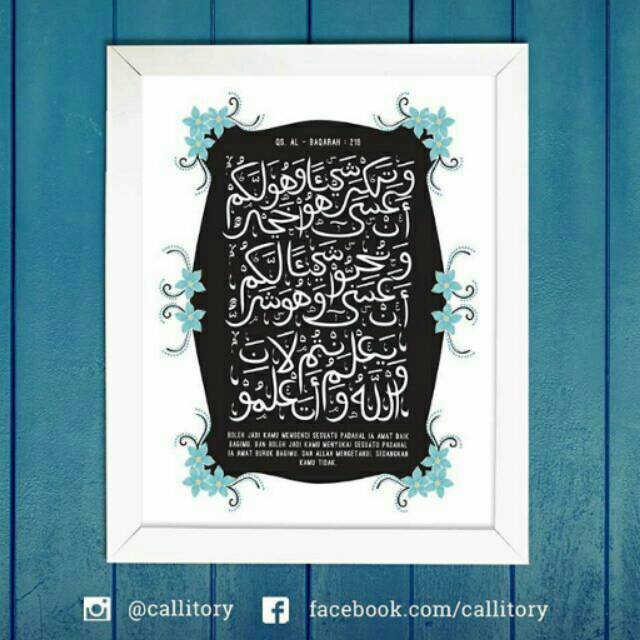 QS. AL - BAQARAH : 216
وَعَسَى أَنْ تَكْرَهُوا شَيْئًا وَهُوَ خَيْرٌ لَكُمْ
وَعَسَى أَنْ تُحِبُّوا شَيْئًا وَهُوَ شَرٌّ لَكُمْ
وَاللَّهُ يَعْلَمُ وَأَنْتُمْ لَا تَعْلَمُونَ
BOLEH JADI KAMU MEMBENCI SESUATU PADAHAL IA AMAT BAIK
BAGIMU, DAN BOLEH JADI KAMU MENYUKAI SESUATU PADAHAL
IA AMAT BURUK BAGIMU, DAN ALLAH MENGETAHUI, SEDANGKAN
KAMU TIDAK.
@callitory
facebook.com/callitory